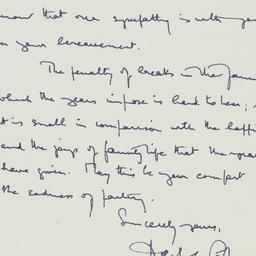 know that our sympathy is with you
in your bereavement.
The penalty of breaks in the fam
which the years impose is hard to bear;
it is small in comparison with the happi
and the joys of family life that the years
have given. May this be your comfort
the sadness of parting.
Sincerely yours,